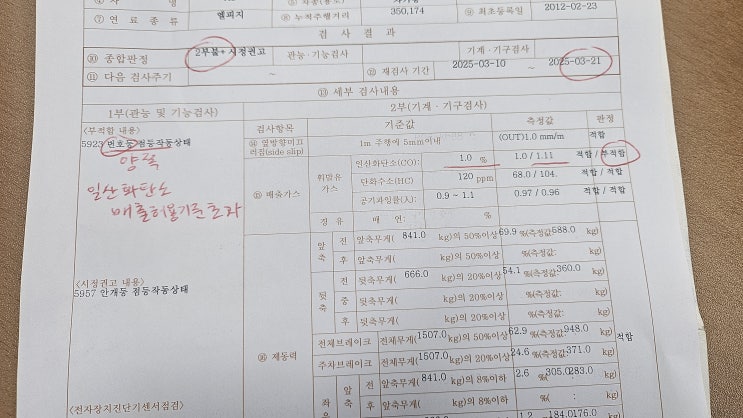 엘피지
⑦ 연 료 종 류
⑧ 누적주행거리
350,174
⑨ 최초등록일
2012-02-23
검 사 결 과
⑩ 종합판정
2부불+시정권고
관능·기능검사
기계·기구검사
⑪ 다음 검사주기
~
⑫ 재검사 기간
2025-03-10 ~ 2025-03-21
⑬ 세부 검사내용
1부(관능 및 기능검사)
2부(기계·기구검사)
<부적합 내용>
5923 번호등 점등작동상태
양쪽
일산화탄소
배출허용기준초과
<시정권고 내용>
5957 안개등 점등작동상태
<전자장치진단기센서점검>
검사항목 기준값 측정값 판정
⑭ 옆방향미끄러짐(side slip) 1m 주행에 5mm이내 (OUT)1.0 mm/m 적합
⑮ 배출가스
휘발유 가스
일산화탄소(CO): 1.0 % 1.0 / 1.11 적합 / 부적합
탄화수소(HC) 120 ppm 68.0 / 104. 적합 / 적합
공기과잉률(λ): 0.9 ~ 1.1 0.97 / 0.96 적합 / 적합
경 유 매 연: %
⑯ 제동력
앞축 전 앞축무게( 841.0 kg)의 50%이상 69.9 %(측정값 588.0 kg)
후 앞축무게( kg)의 50%이상 %(측정값: kg)
뒷축 전 뒷축무게( 666.0 kg)의 20%이상 54.1 %(측정값 360.0 kg)
중 뒷축무게( kg)의 20%이상 %(측정값: kg)
후 뒷축무게( kg)의 20%이상 %(측정값: kg)
전체브레이크 전체무게(1507.0 kg)의 50%이상 62.9 %(측정값:948.0 kg) 적합
주차브레이크 전체무게(1507.0 kg)의 20%이상 24.6 %(측정값:371.0 kg)
앞축 전 앞축무게( 841.0 kg)의 8%이하 2.6 %( 305.0283.0 kg)
후 앞축무게( kg)의 8%이하 %( : kg)
1.2 184.0176.0